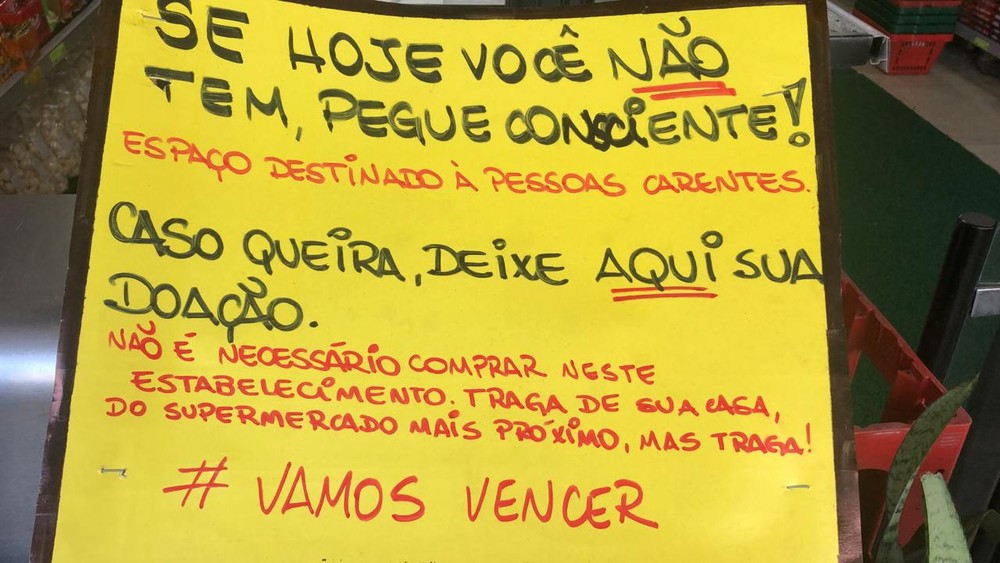 SE HOJE VOCÊ NÃO
TEM, PEGUE CONSCIENTE!
ESPAÇO DESTINADO À PESSOAS CARENTES.
CASO QUEIRA, DEIXE AQUI SUA
DOAÇÃO.
NÃO É NECESSÁRIO COMPRAR NESTE
ESTABELECIMENTO. TRAGA DE SUA CASA,
DO SUPERMERCADO MAIS PRÓXIMO, MAS TRAGA!
# VAMOS VENCER